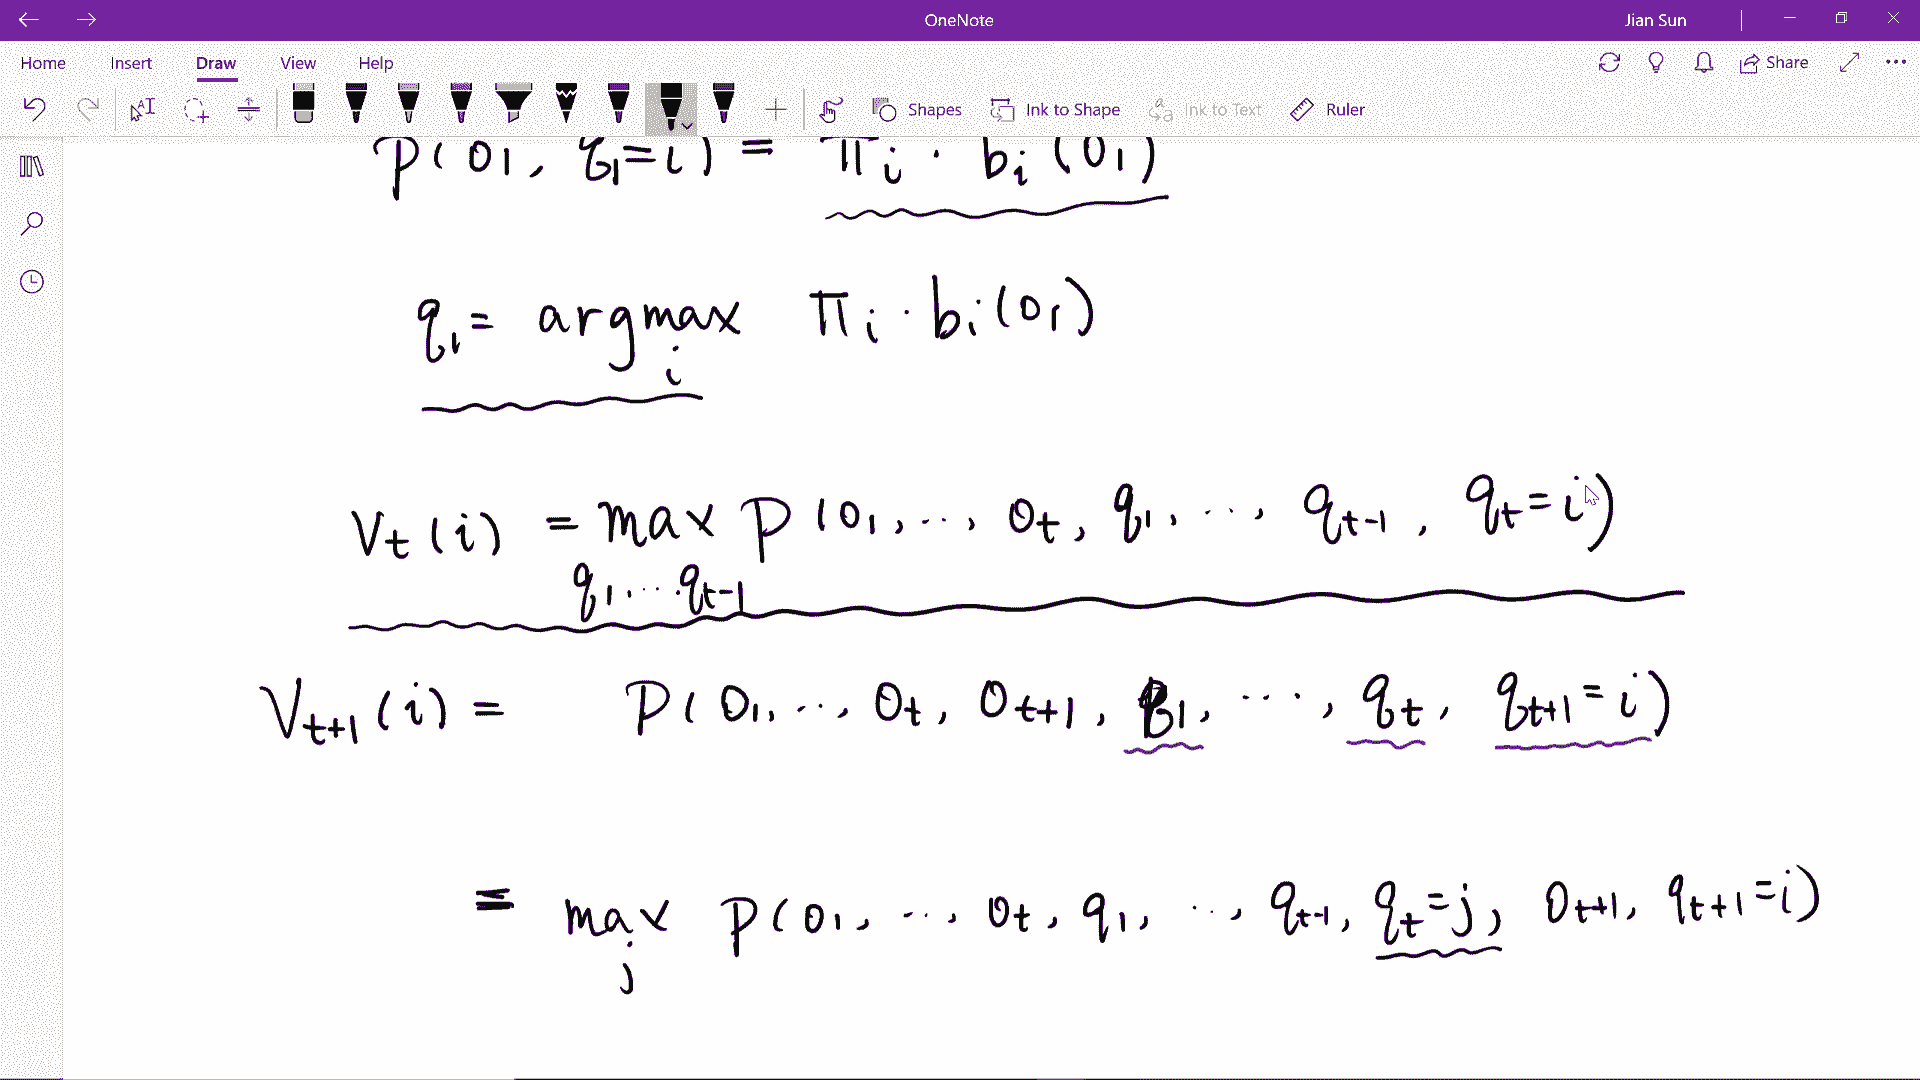 OneNote
Jian Sun
Home Insert Draw View Help
Share
Shapes Ink to Shape Ink to Text Ruler
P(O₁, q₁=i) = πᵢ · bᵢ(O₁)
q₁ = argmax πᵢ · bᵢ(O₁)
i
Vₜ(i) = max P(O₁, ..., Oₜ, q₁, ..., qₜ₋₁, qₜ=i)
q₁...qₜ₋₁
Vₜ₊₁(i) = P(O₁, ..., Oₜ, Oₜ₊₁, q₁, ..., qₜ, qₜ₊₁=i)
= max P(O₁, ..., Oₜ, q₁, ..., qₜ₋₁, qₜ=j, Oₜ₊₁, qₜ₊₁=i)
j